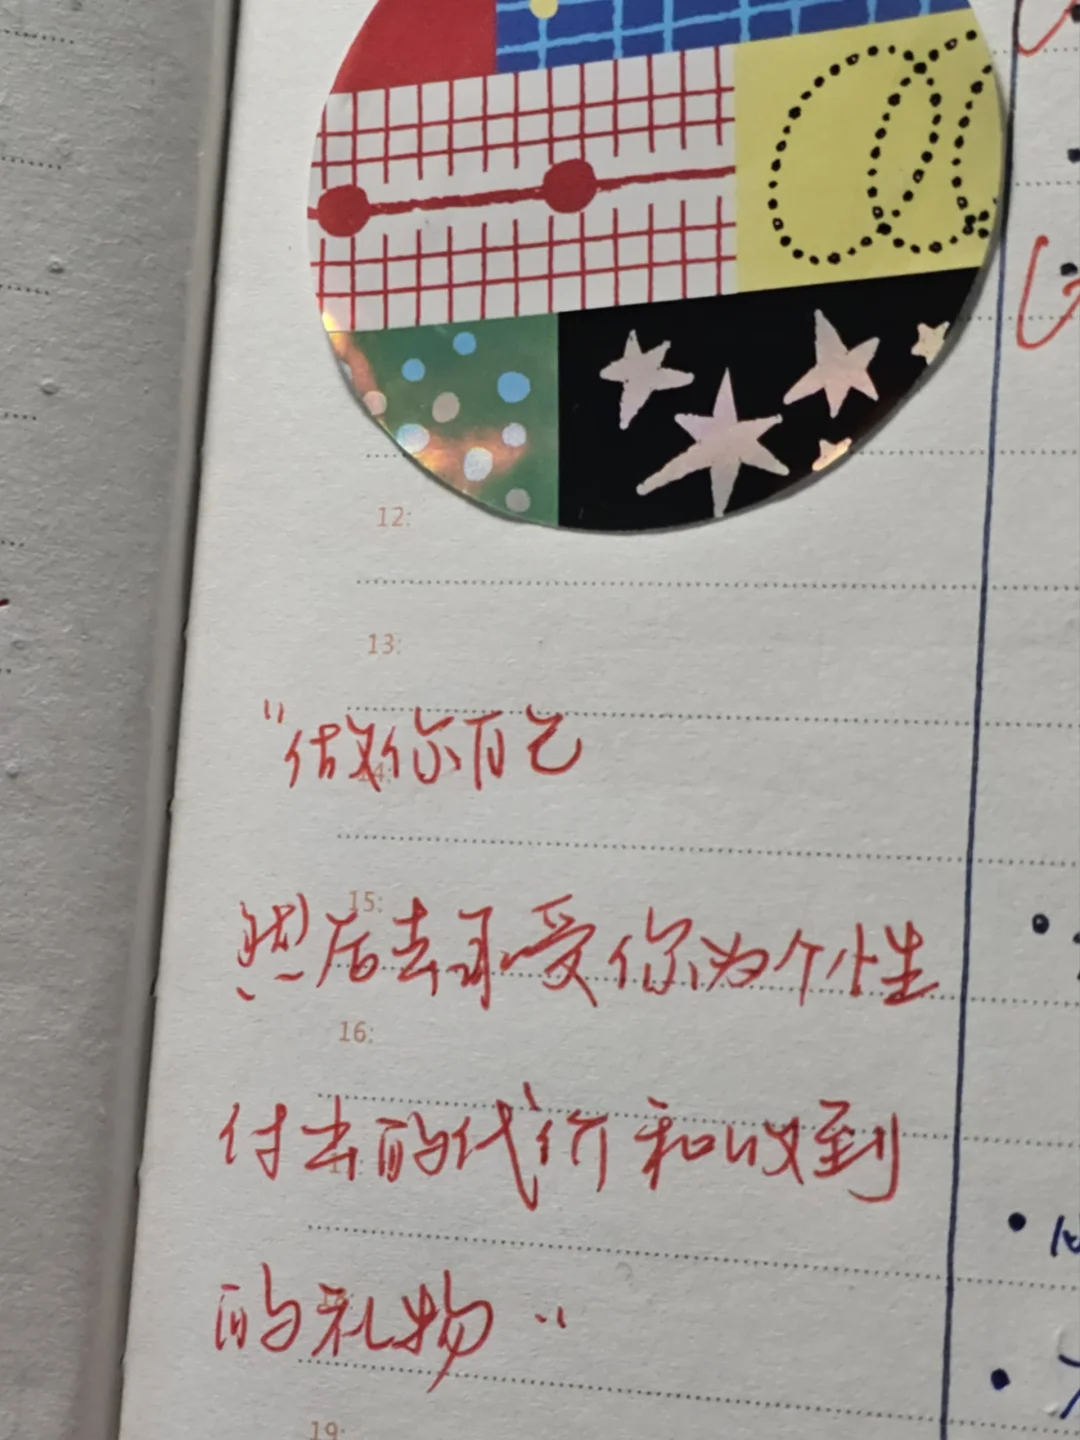 a
12:
13:
"做你自己
14:
15:
然后去承受你为个性
16:
付去的代价和收到
的礼物"
19: